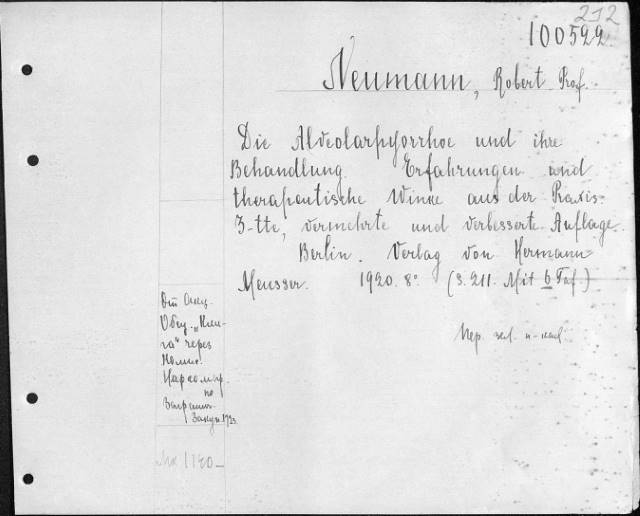 212
100522
Neumann, Robert Prof.
Die Alveolarpyorrhoe und ihre
Behandlung. Erfahrungen und
therapeutische Winke aus der Praxis.
3-tte, vermehrte und verbesserte Auflage.
Berlin. Verlag von Hermann
Meusser. 1920. 8° (S. 211. Mit 6 Taf.)
От Акц.
Общ. „Кни-
га" через
Комис.
Наркомвр.
по
Загранич.
Закуп. 1923.
Мк 1140—